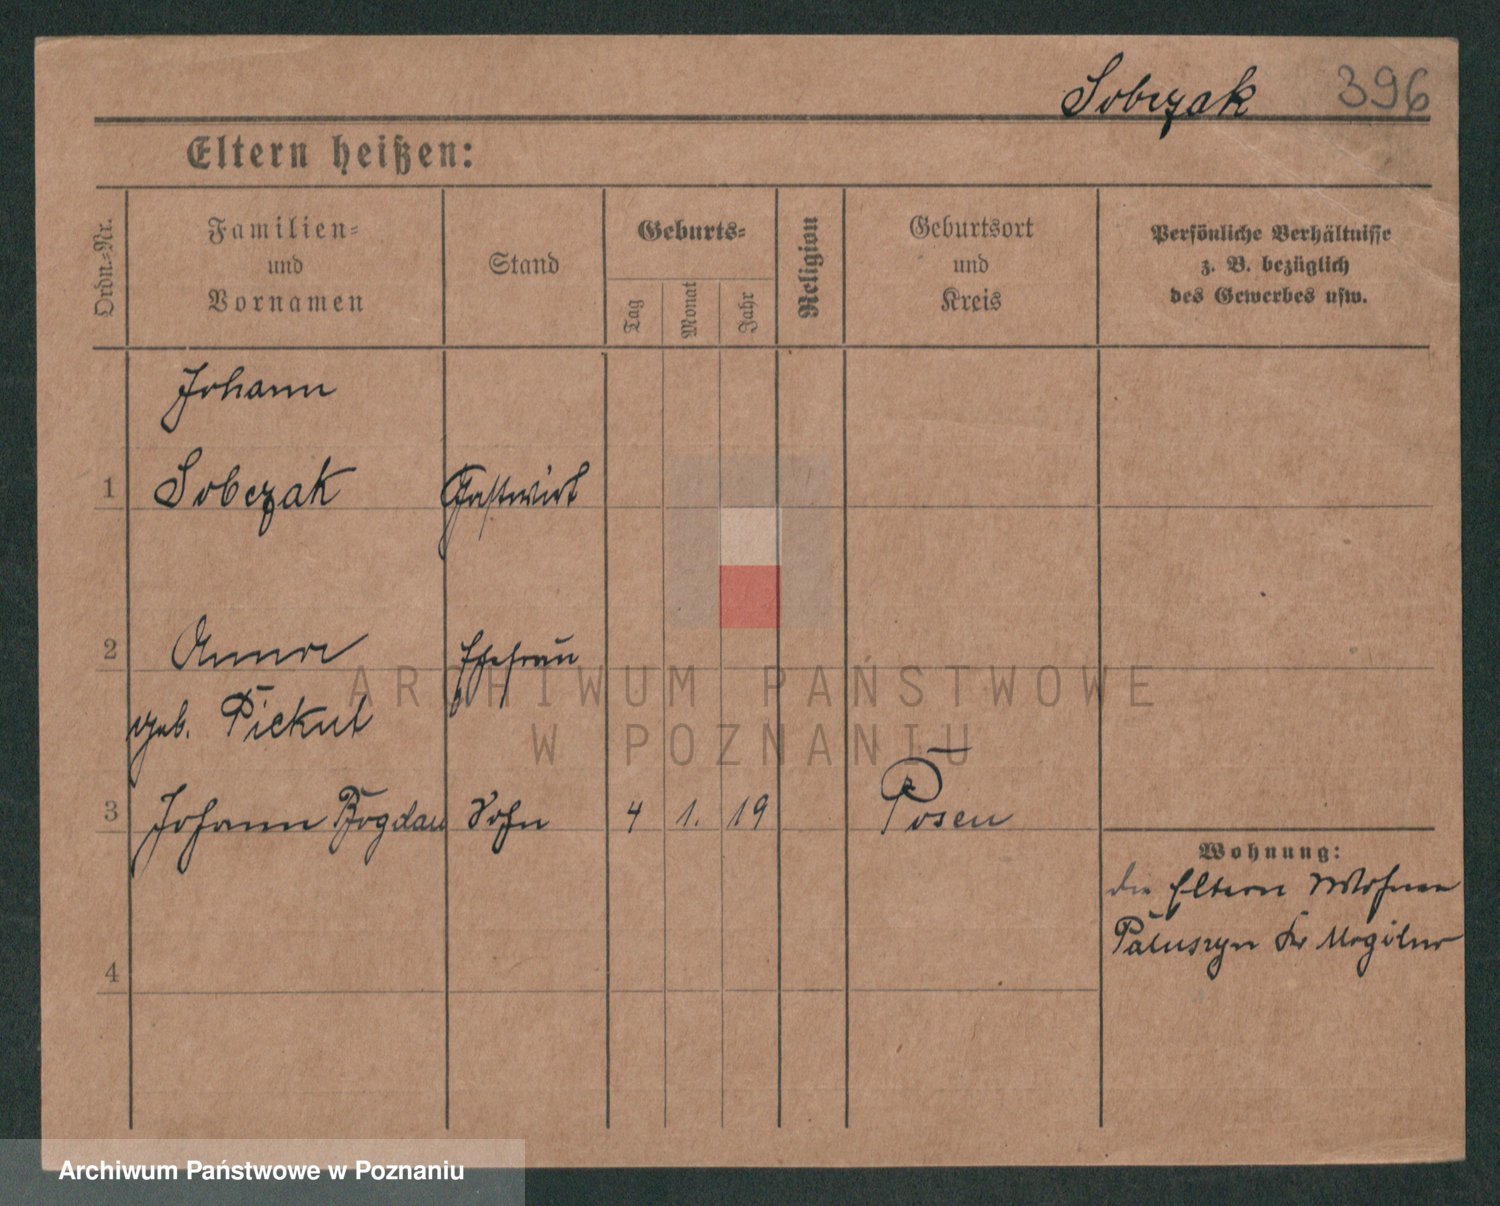 Sobczak 396
Eltern heißen:
Ordn.-Nr.
Familien-
und
Vornamen
Stand
Geburts-
Tag
Monat
Jahr
Religion
Geburtsort
und
Kreis
Persönliche Verhältnisse
z. B. bezüglich
des Gewerbes usw.
Johann
1 Sobczak Gastwirt
2 Anna Ehefrau
geb. Piekut
3 Johann Bogdan Sohn 4 1. 19 Posen
Wohnung:
die Eltern wohnen
Kr Mogilno
4
ARCHIWUM PAŃSTWOWE
W POZNANIU
Archiwum Państwowe w Poznaniu